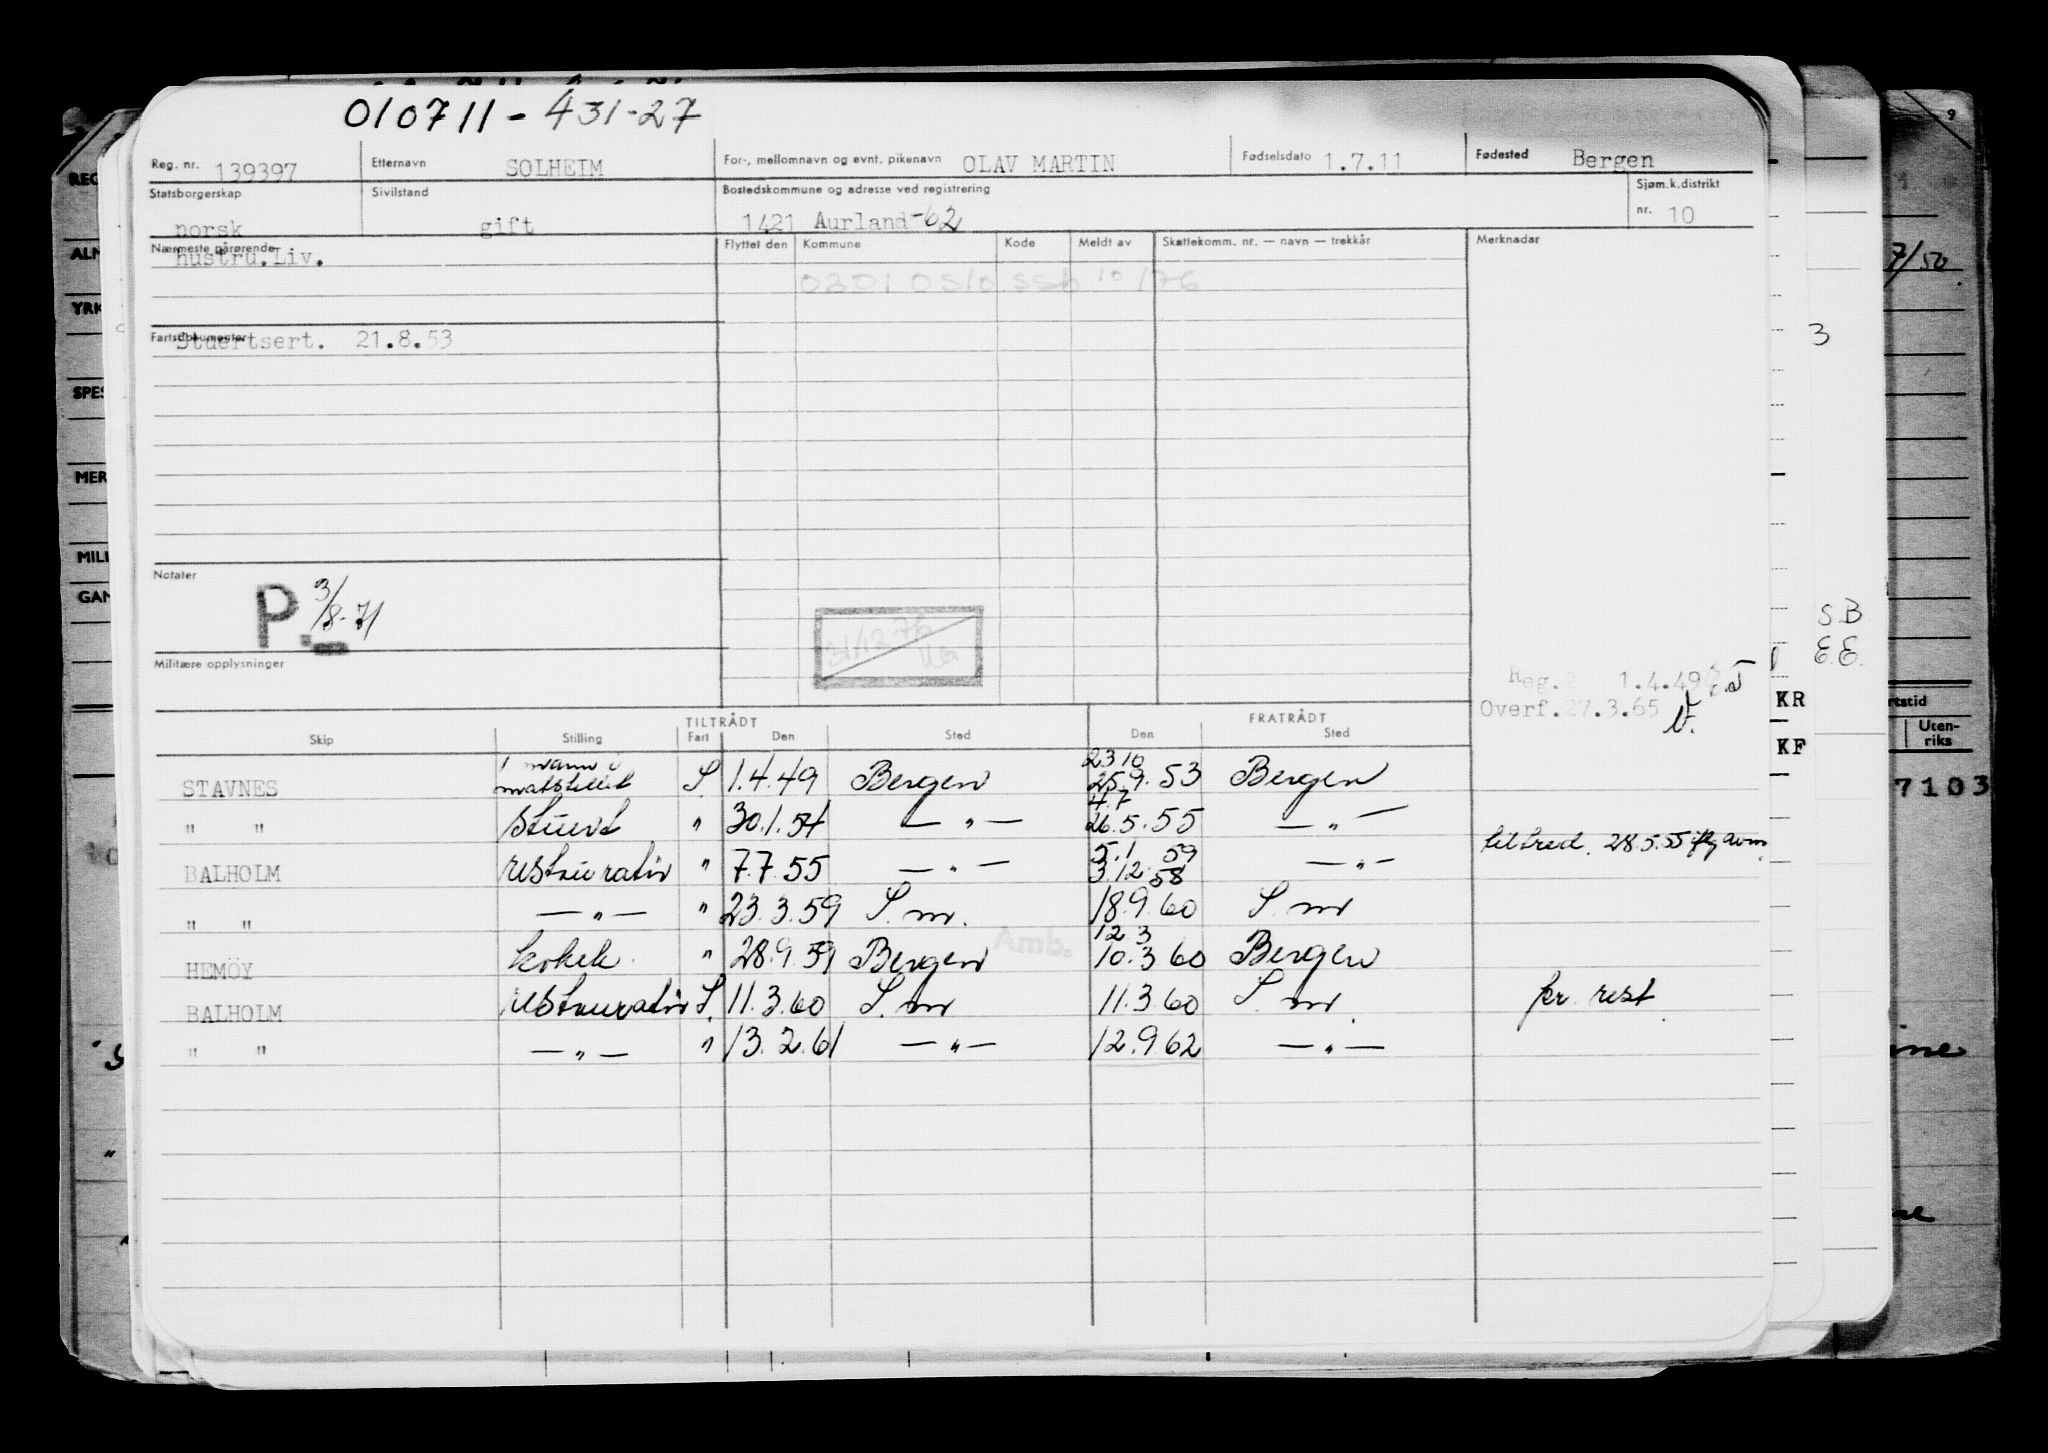 010711-431-27
Reg. nr. 139397 Etternavn SOLHEIM For-, mellomnavn og evnt. pikenavn OLAV MARTIN Fødselsdato 1.7.11 Fødested Bergen
Statsborgerskap Sivilstand Bostedskommune og adresse ved registrering Sjøm.k.distrikt
norsk gift 1421 Aurland-62 nr. 10
Nærmeste pårørende Flyttet den Kommune Kode Meldt av Skattekomm. nr. — navn — trekkår Merknader
hustru.Liv.
0301 Oslo SSB 10/76
Fartsdokumenter
Stuertsert. 21.8.53
Notater
P. 3/8-71
31/12-76
Militære opplysninger
Reg. 1.4.49
Overf. 27.3.65
TILTRÅDT FRATRÅDT
Skip Stilling Fart Den Sted Den Sted
1 mann i 23 10
STAVNES matstellet S. 1.4.49 Bergen 25.9.53 Bergen
4.7
" " Stuert " 30.1.54 — " — 26.5.55 — " —
tiltred. 28.5.55
5.1 59
BALHOLM restauratør " 7.7.55 — " — 3.12.58 — " —
" " — " — " 23.3.59 S. m. 18.9.60 S. m
Amb.
12 3
HEMÖY kokk " 28.9.59 Bergen 10.3 60 Bergen
BALHOLM restauratør S. 11.3.60 S. m 11.3.60 S. m. pr. rest.
" " — " — " 13.2.61 — " — 12.9.62 — " —
REG
ALM
YRK
SPES
MER
MILI
GAN
9
7/50
3
S.B
E.E.
KR
KF
rtstid
Uten-
riks
7103